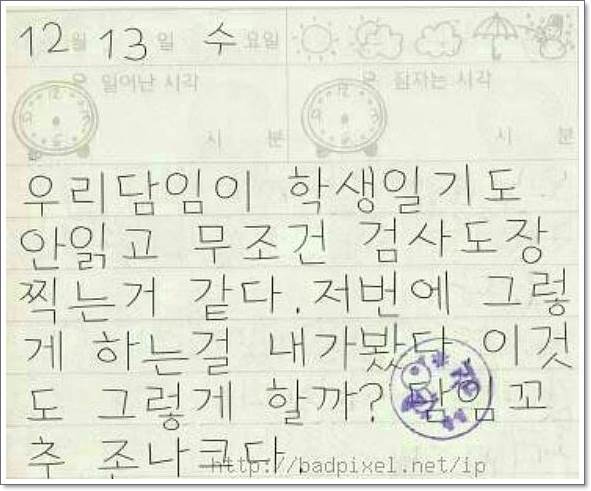 12 월 13 일 수 요일
일어난 시각 잠자는 시각
시 분 시 분
우리담임이 학생일기도
안읽고 무조건 검사도장
찍는거 같다. 저번에 그렇
게 하는걸 내가봤다. 이것
도 그렇게 할까? 담임꼬
추 존나크다.
http://badpixel.net/ip